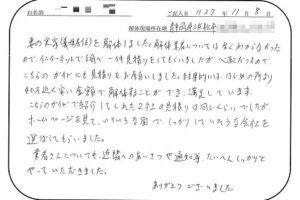 お名前
ご記入日 H27年 11月 8日
解体現場所在地 静岡県浜松市
妻の実家(母居住)を解体しました。解体業者については全くわからなかった
ので、インターネットで調べ、一件見積りをしてもらいましたが、心配だったので
こちらのガイドにも見積りをお願いしました。結果的には、はじめの所より
40万近く安い金額で解体することができ、満足しています。
こちらのガイドで紹介してくれた2社の見積りは同じくらいでしたが、
ホームページを見て、いろいろな面で、しっかりしていそうな会社を
選ばせてもらいました。
業者さんとっても、近隣へのあいさつや通知等、たいへんしっかりと
やっていただきました。
ありがとうございました